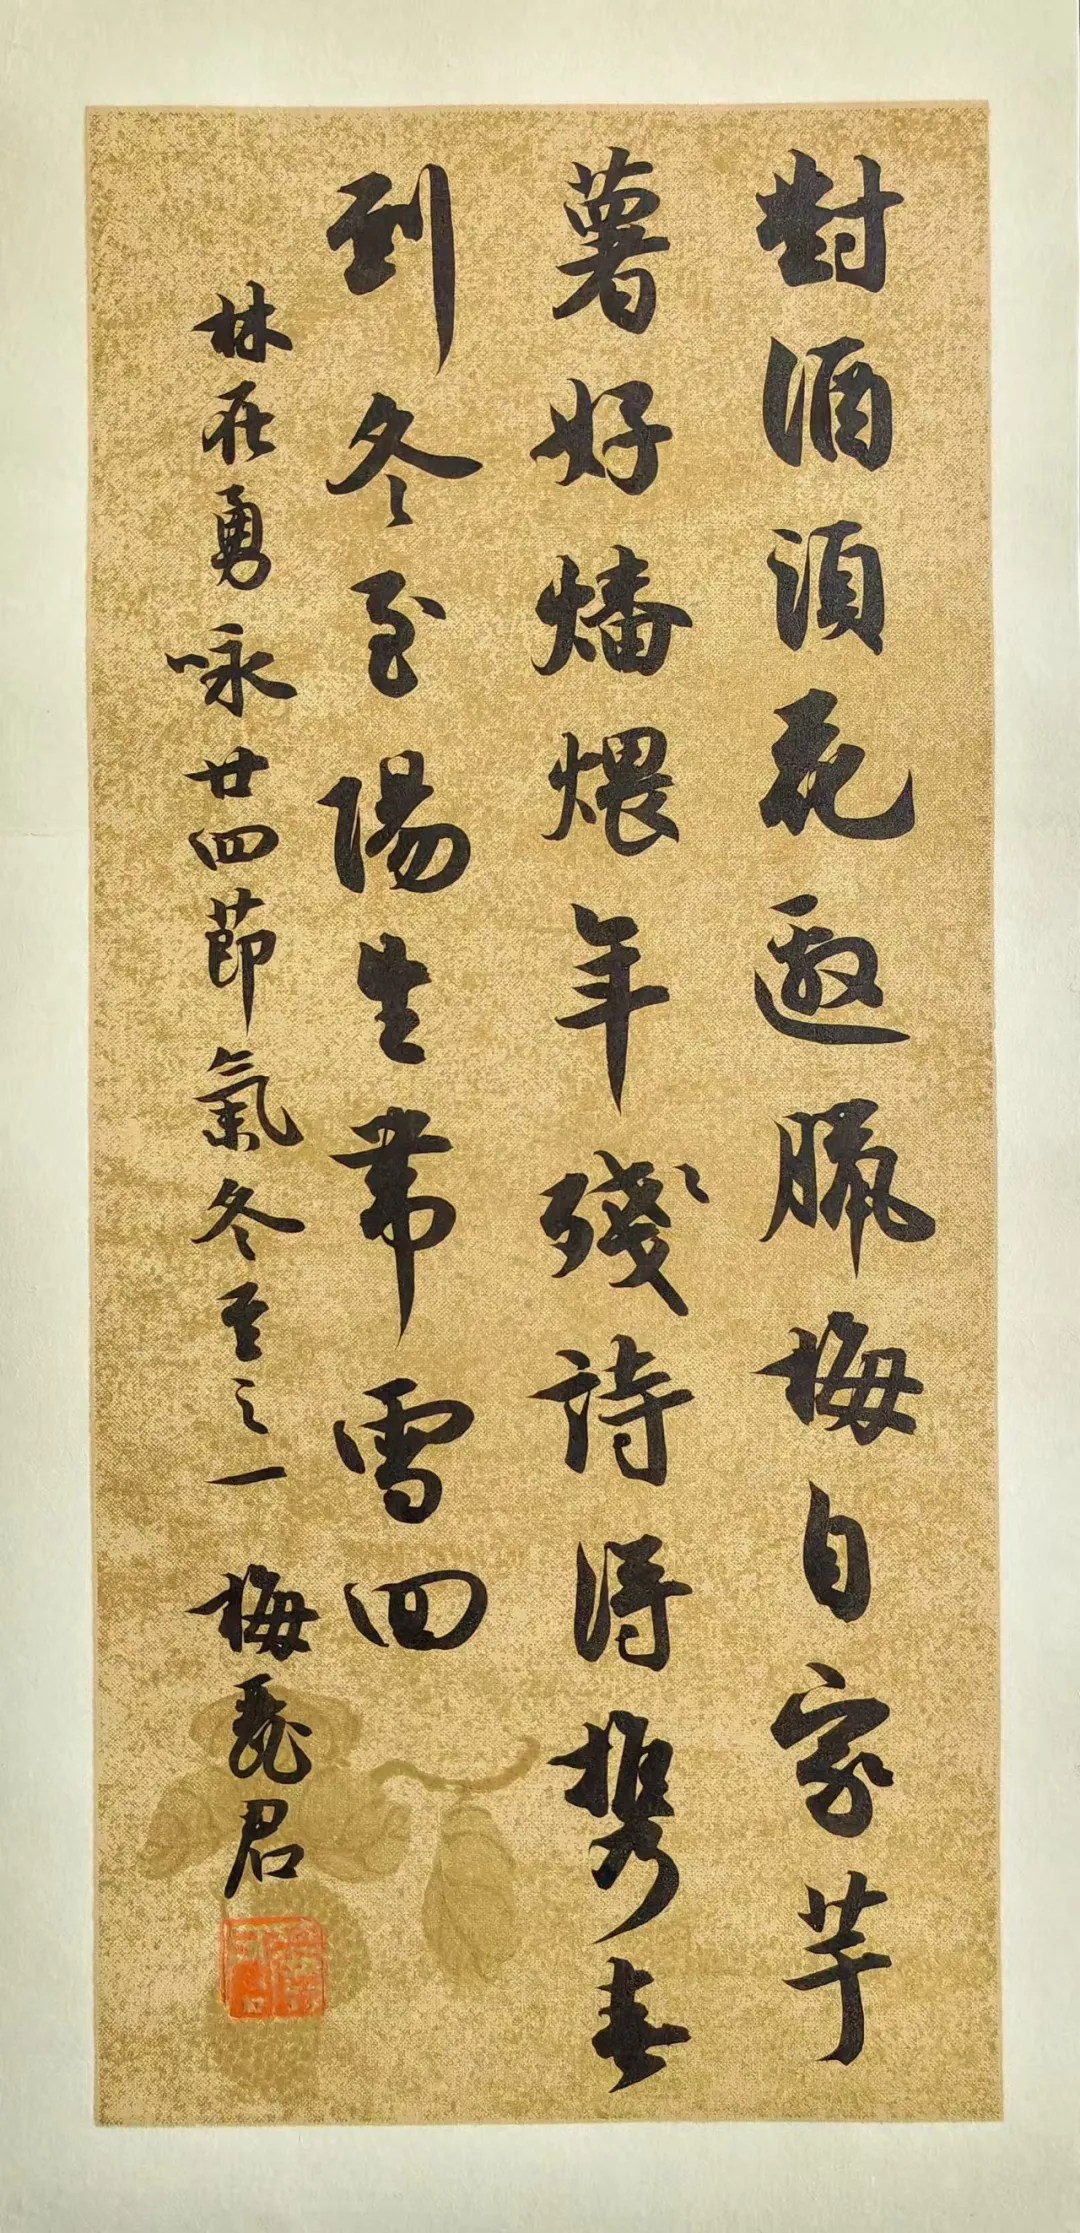 對酒須花邀臘梅自家芋
薯好燔煨年殘詩得攜春
到冬至陽生帶雪回
林在勇咏廿四節氣冬至之一 梅君